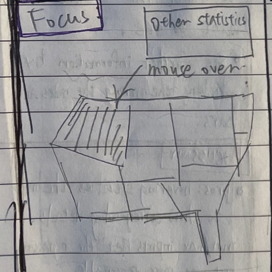 Focus
Other statistics
mouse over